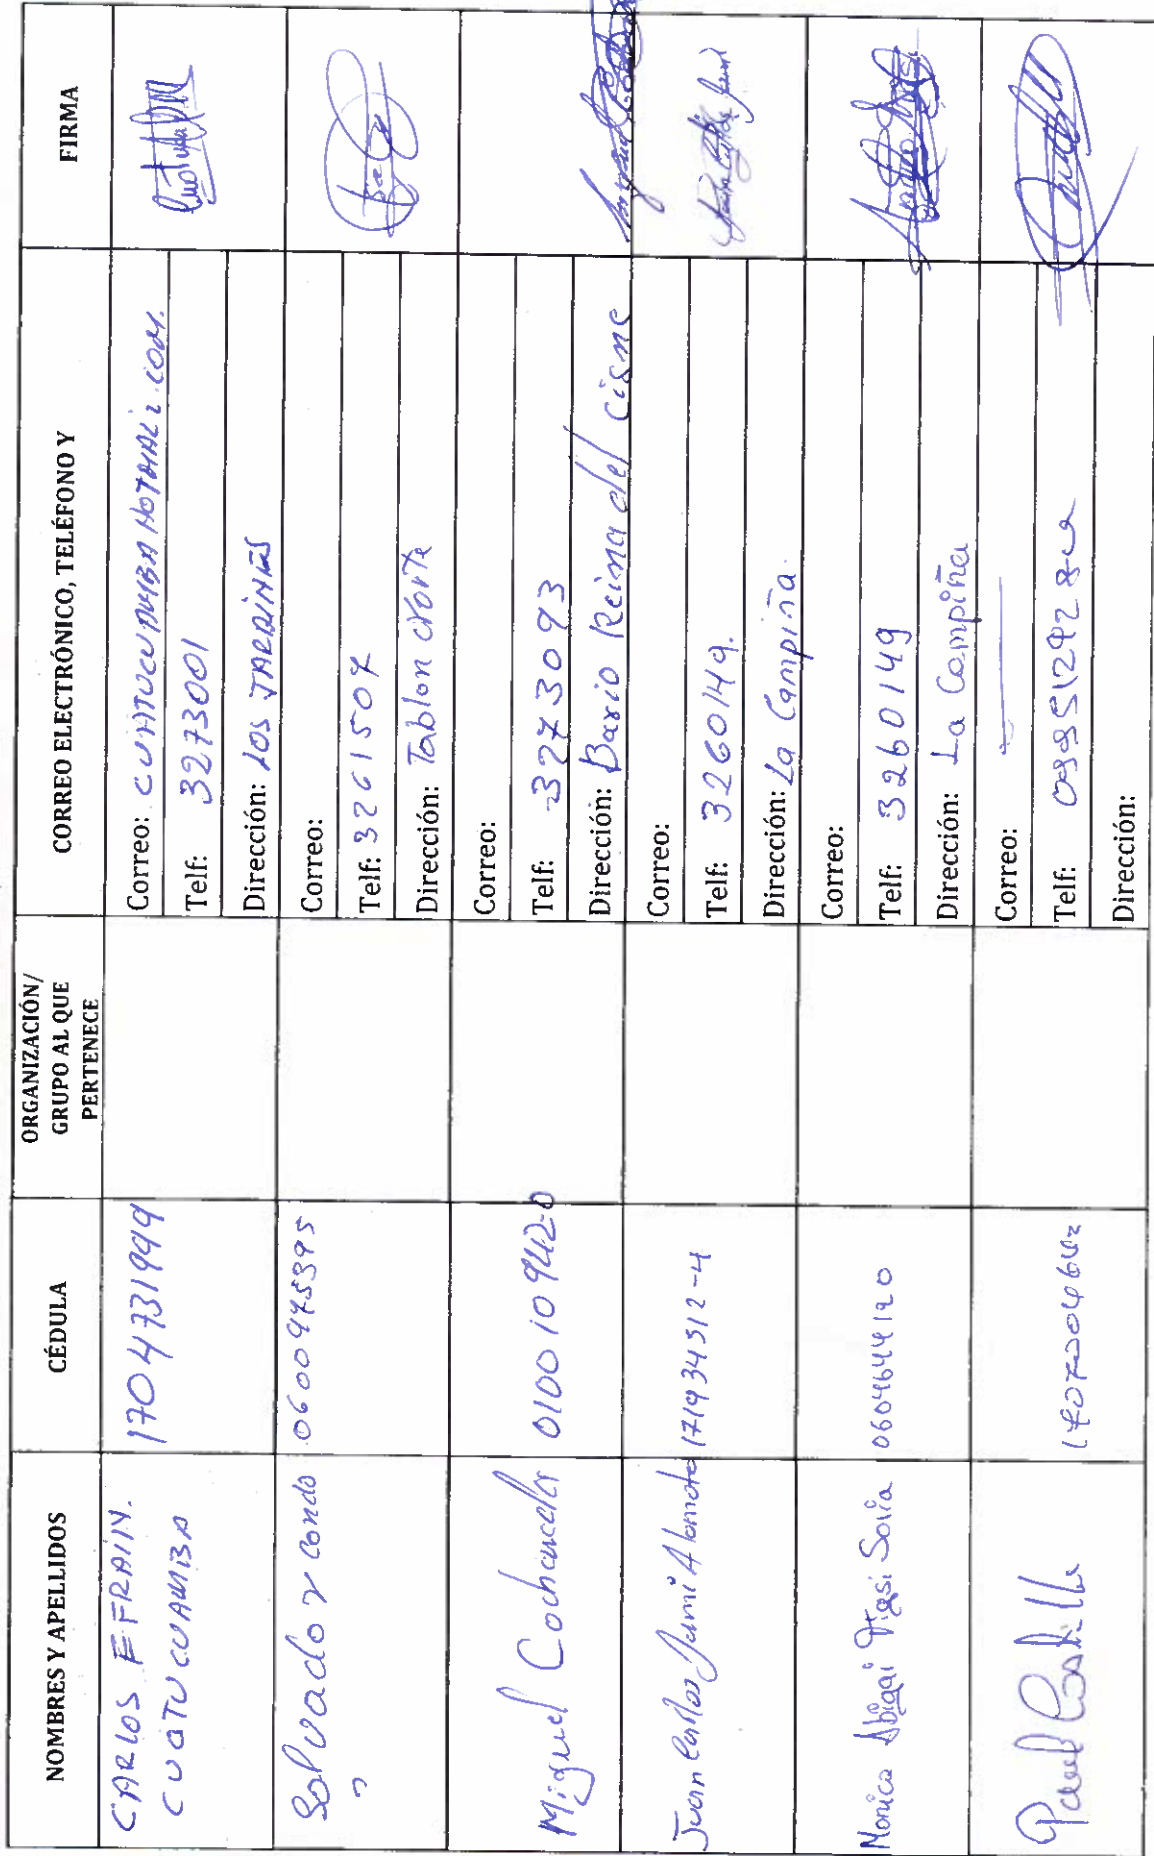 NOMBRES Y APELLIDOS
CÉDULA
ORGANIZACIÓN/
GRUPO AL QUE
PERTENECE
CORREO ELECTRÓNICO, TELÉFONO Y
FIRMA
CARLOS EFRAIN.
CUATUCUAMBA
1704731999
Correo: CUATUCUAMBA HOTMAIL.COM.
Telf: 3273001
Dirección: LOS JARDINES
Salvador Condo
0600945395
Correo:
Telf: 3261507
Dirección: Tablon Norte
Miguel Cochancela
010010942-0
Correo:
Telf: 3273093
Dirección: Bario Reina del Cisne
Juan Carlos Jami Alomoto
171934512-4
Correo:
Telf: 3260149.
Dirección: La Campiña.
Monica Abigai Pigsi Soria
0604644120
Correo:
Telf: 3260149
Dirección: La Campiña
Paul Castillo
Correo:
Telf:
Dirección: